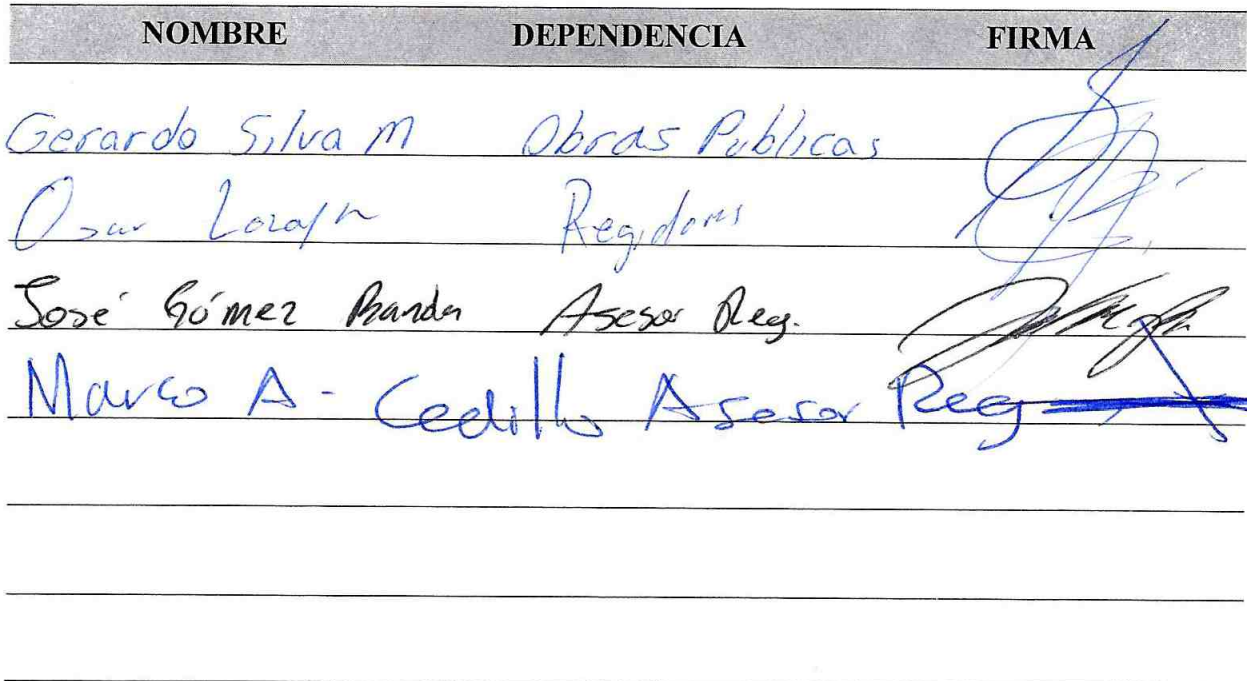 NOMBRE DEPENDENCIA FIRMA
Gerardo Silva M Obras Publicas
Regidores
José Gómez Banda Asesor Reg.
Marco A- Cedillo Asesor Reg